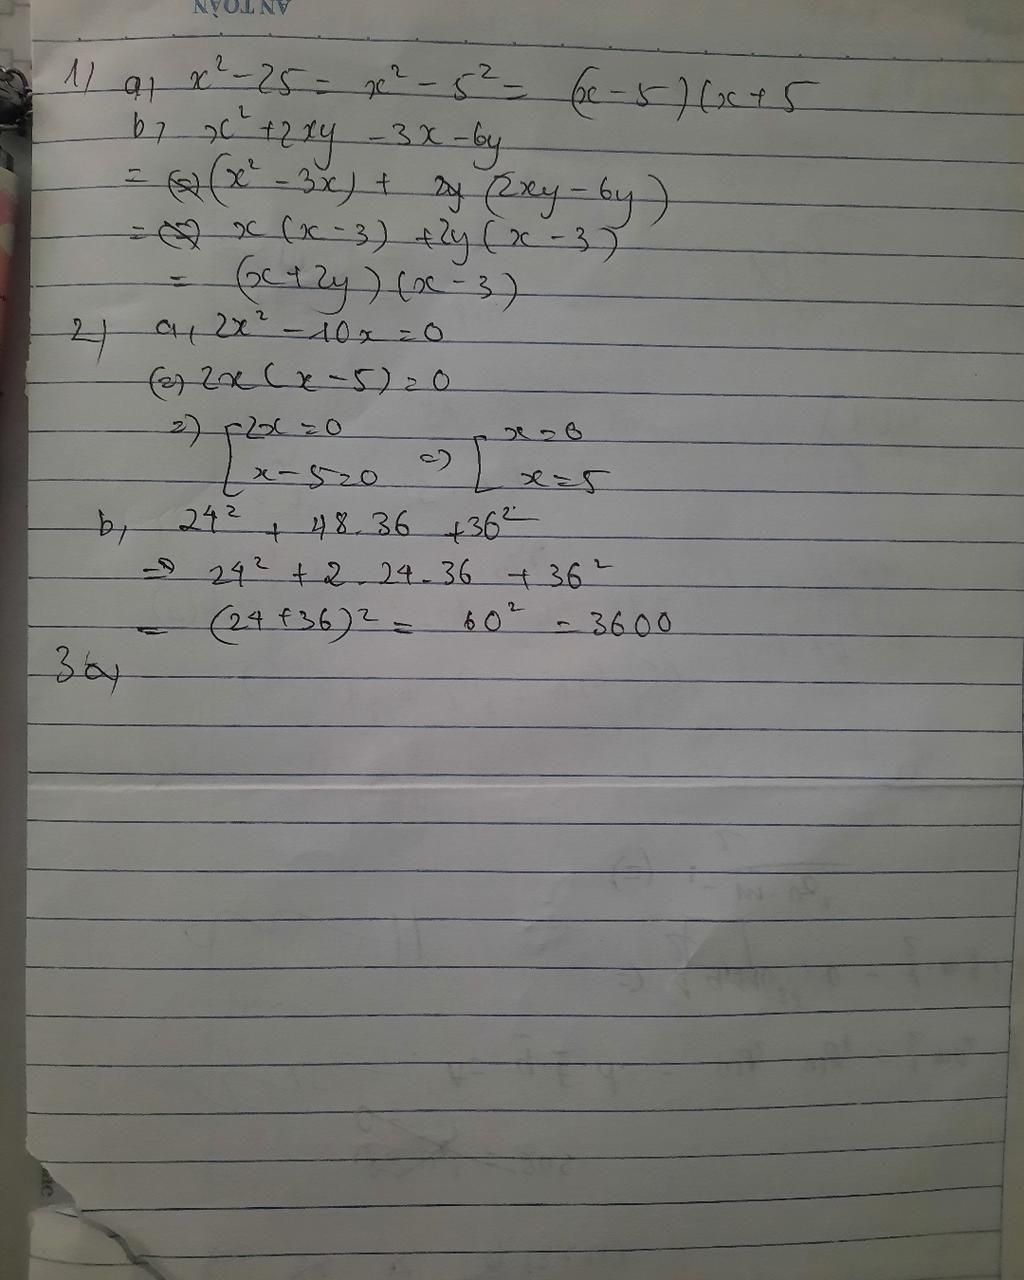 AN TOÀN
1) a, x² - 25 = x² - 5² = (x - 5)(x + 5
b, x² + 2xy - 3x - 6y
= (x² - 3x) + (2xy - 6y)
= x (x - 3) + 2y (x - 3)
= (x + 2y)(x - 3)
2) a, 2x² - 10x = 0
(=) 2x (x - 5) = 0
=) [2x = 0 =) [x = 0
x - 5 = 0 x = 5
b, 24² + 48.36 + 36²
=> 24² + 2.24.36 + 36²
= (24 + 36)² = 60² = 3600
3 a,